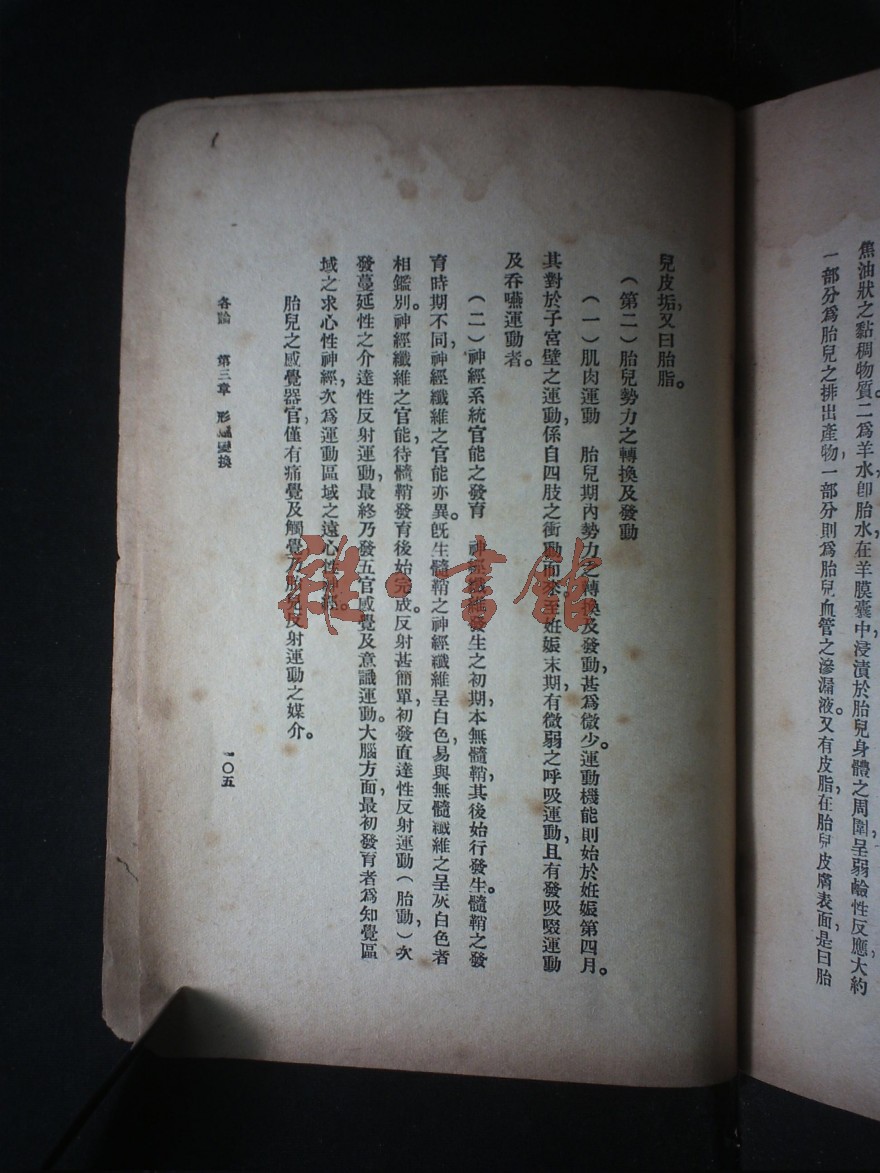 焦油狀之黏稠物質。二爲羊水卽胎水在羊膜囊中浸漬於胎兒身體之周圍呈弱鹼性反應大約
一部分爲胎兒之排出產物一部分則爲胎兒血管之滲漏液。又有皮脂在胎兒皮膚表面是曰胎
兒皮垢,又曰胎脂。
(第二)胎兒勢力之轉換及發動
(一)肌肉運動 胎兒期內勢力之轉換及發動甚爲微少。運動機能則始於妊娠第四月。
其對於子宮壁之運動,係自四肢之衝動而來。至妊娠末期,有微弱之呼吸運動,且有發吸啜運動
及吞嚥運動者。
(二)神經系統官能之發育 神經纖維發生之初期,本無髓鞘,其後始行發生。髓鞘之發
育時期不同,神經纖維之官能亦異。旣生髓鞘之神經纖維呈白色,易與無髓纖維之呈灰白色者
相鑑別。神經纖維之官能,待髓鞘發育後始完成。反射甚簡單,初發直達性反射運動(胎動),次
發蔓延性之介達性反射運動,最終乃發五官感覺及意識運動。大腦方面,最初發育者爲知覺區
域之求心性神經,次爲運動區域之遠心性神經。
胎兒之感覺器官,僅有痛覺及觸覺,乃胎兒反射運動之媒介。
各論 第三章 形 變換
一〇五
雅 書館